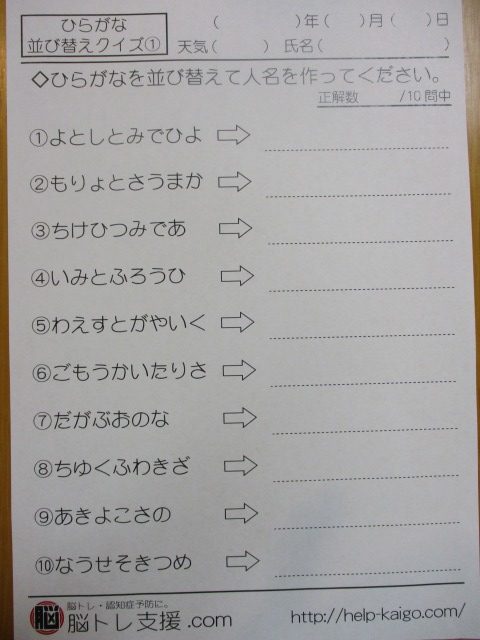 ひらがな
並び替えクイズ①
(　　　)年(　　)月(　　)日
天気(　　　) 氏名(　　　　　　)
◇ひらがなを並び替えて人名を作ってください。
正解数　　　/10問中
①よとしとみでひよ ⇨
②もりょとさうまか ⇨
③ちけひつみであ ⇨
④いみとふろうひ ⇨
⑤わえすとがやいく ⇨
⑥ごもうかいたりさ ⇨
⑦だがぶおのな ⇨
⑧ちゆくふわきざ ⇨
⑨あきよこさの ⇨
⑩なうせそきつめ ⇨
脳 脳トレ・認知症予防に。
脳トレ支援.com
http://help-kaigo.com/